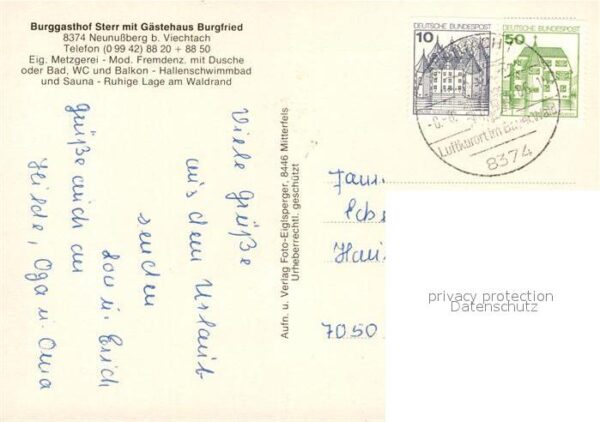 Burggasthof Sterr mit Gästehaus Burgfried
8374 Neunußberg b. Viechtach
Telefon (0 99 42) 88 20 + 88 50
Eig. Metzgerei - Mod. Fremdenz. mit Dusche
oder Bad, WC und Balkon - Hallenschwimmbad
und Sauna - Ruhige Lage am Waldrand
Viele Grüße
aus dem Urlaub
senden
Lou u. Erich
Grüße auch an
Hilde, Opa u. Oma
Aufn. u. Verlag Foto-Eiglsperger, 8446 Mitterfels
Urheberrechtl. geschützt
DEUTSCHE BUNDESPOST
10
DEUTSCHE BUNDESPOST
50
Luftkurort im Bayer. Wald
8374
7050
privacy protection
Datenschutz